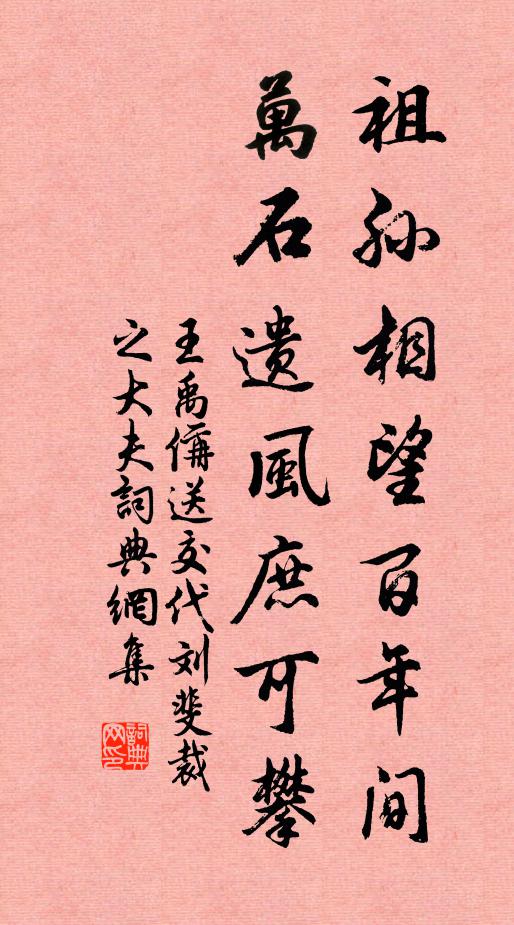 祖孙相望百年间
萬石遗風庶可攀
王禹偁送交代刘斐裁
之大夫詞典網集
詞典
网印